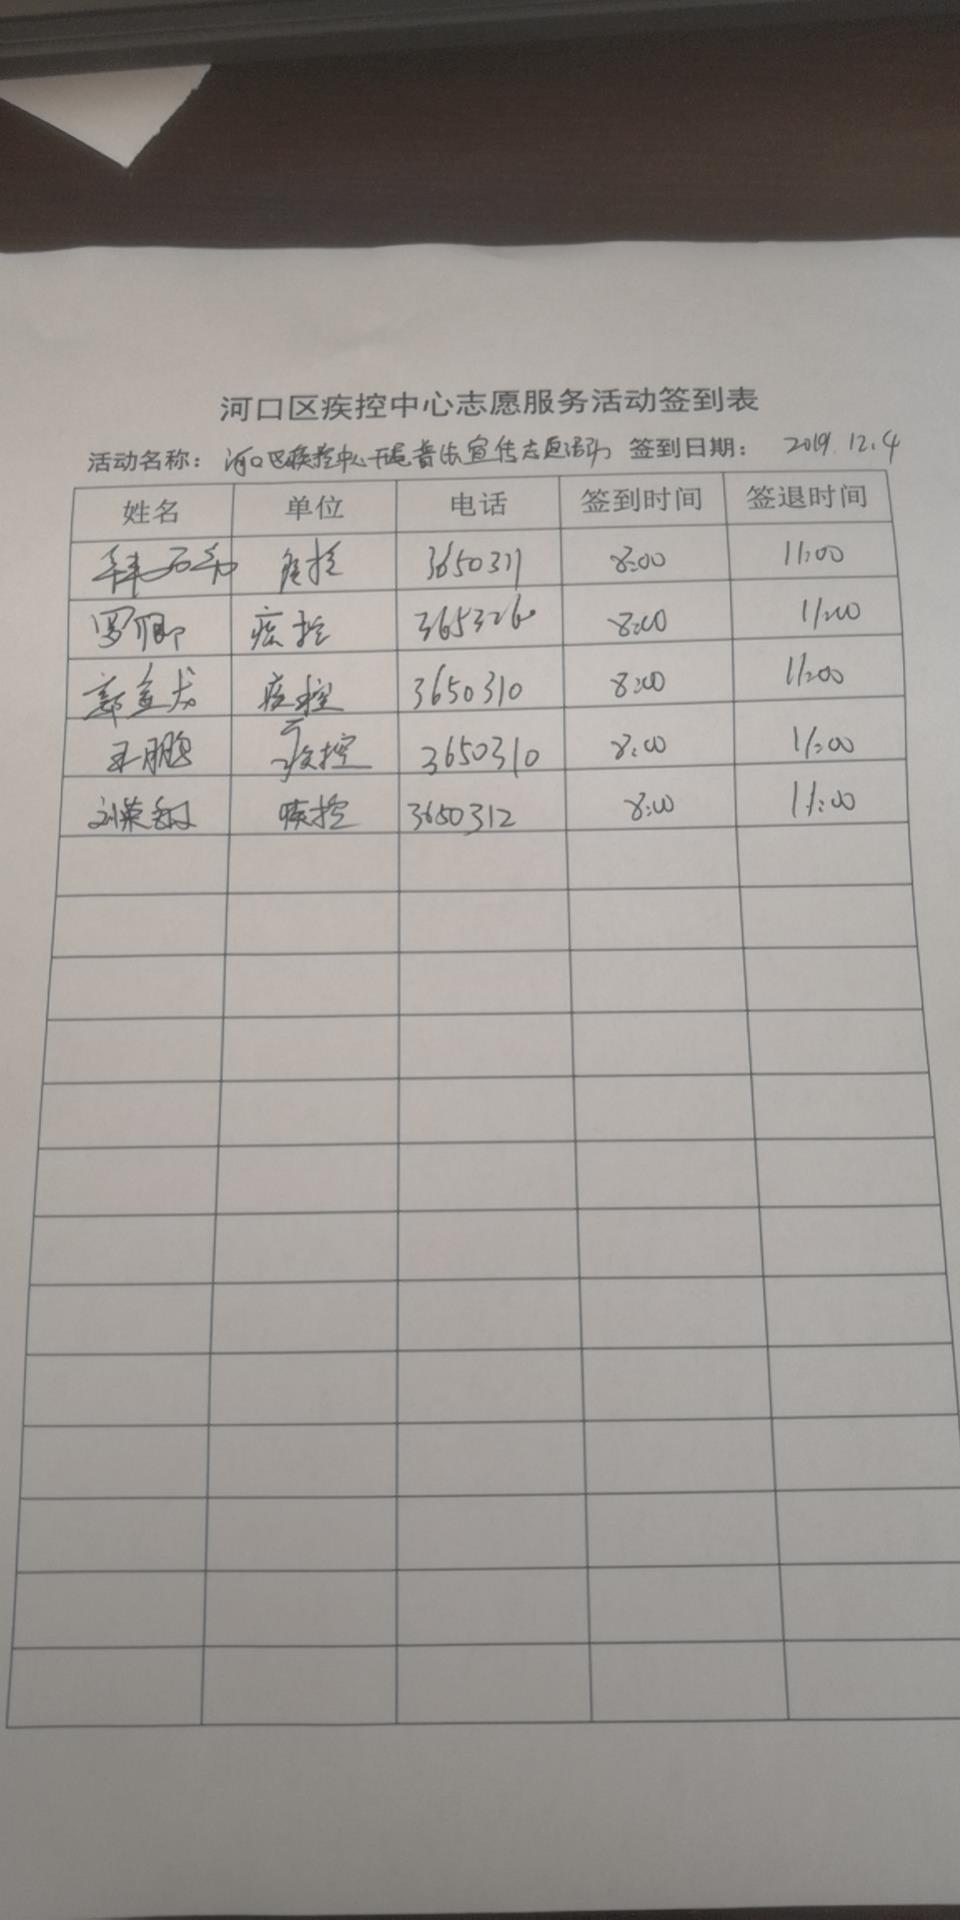 河口区疾控中心志愿服务活动签到表
活动名称： 河口区疾控中心开展普法宣传志愿活动 签到日期： 2019.12.4
姓名 单位 电话 签到时间 签退时间
疾控 8:00 11:00
罗卿 疾控 8:00 11:00
疾控 3650310 8:00 11:00
王鹏 疾控 3650310 8:00 11:00
刘荣 疾控 3650312 8:00 11:00